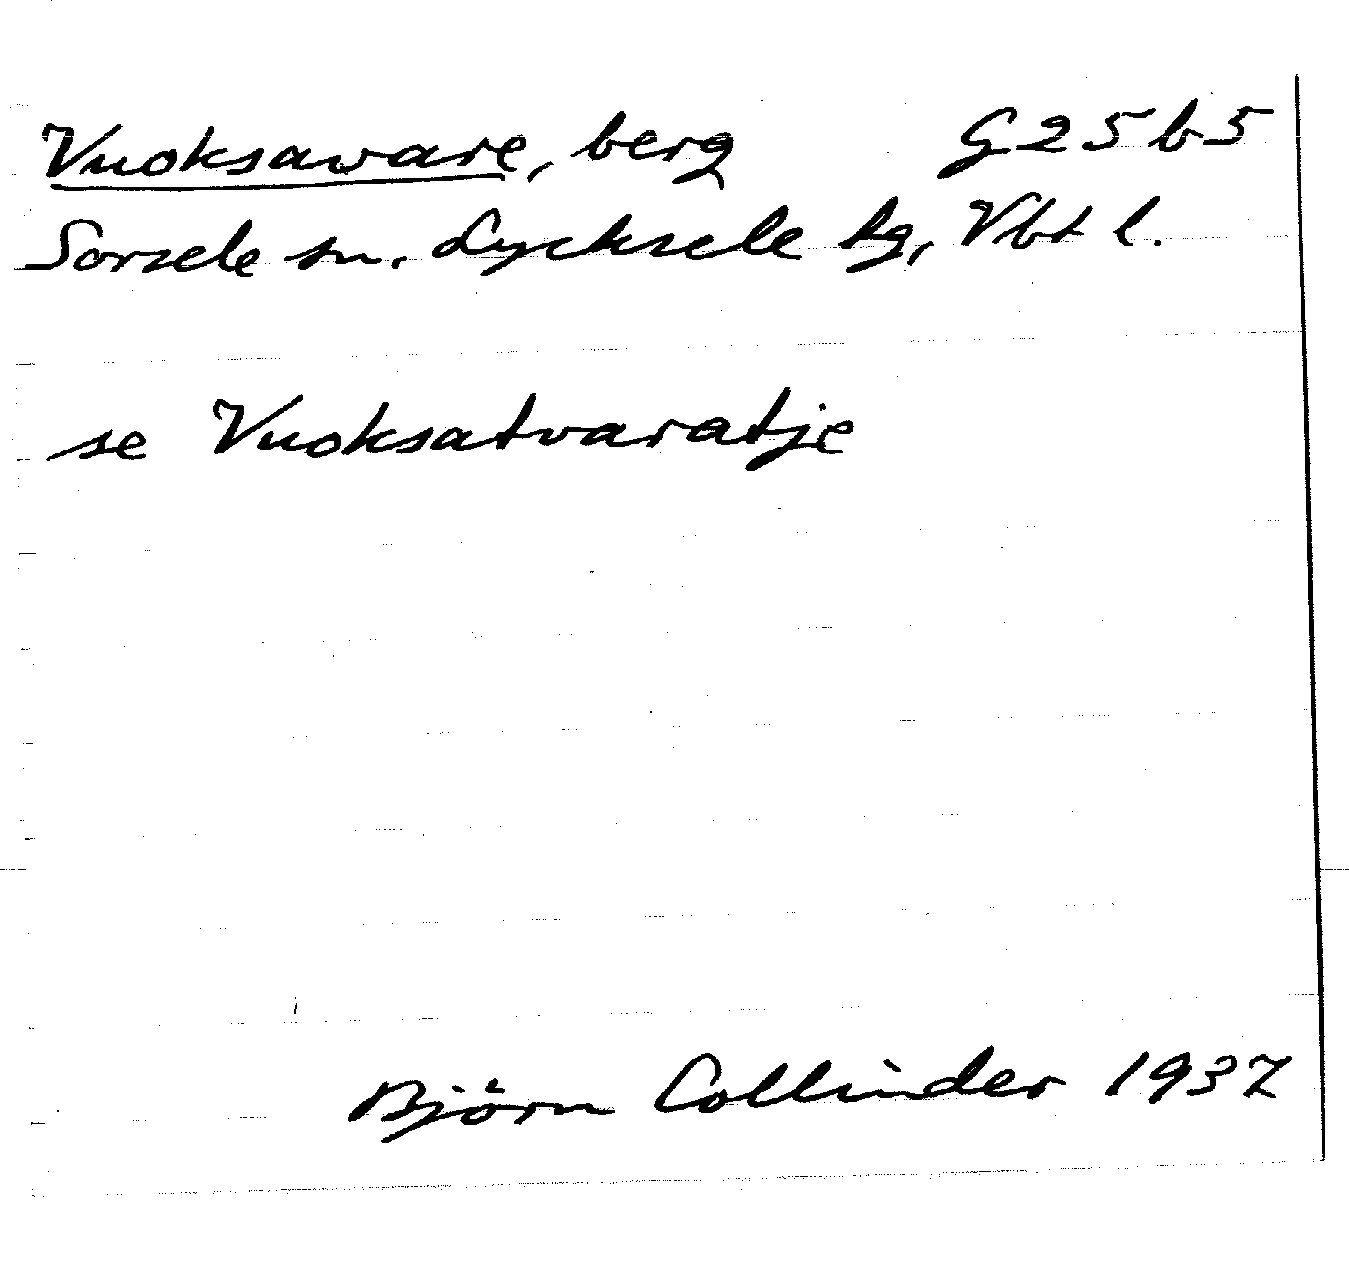 Vuoksavare, berg G25b5
Sorsele sn. Lycksele tg, Vbt l.
se Vuoksatvaratje
Björn Collinder 1937